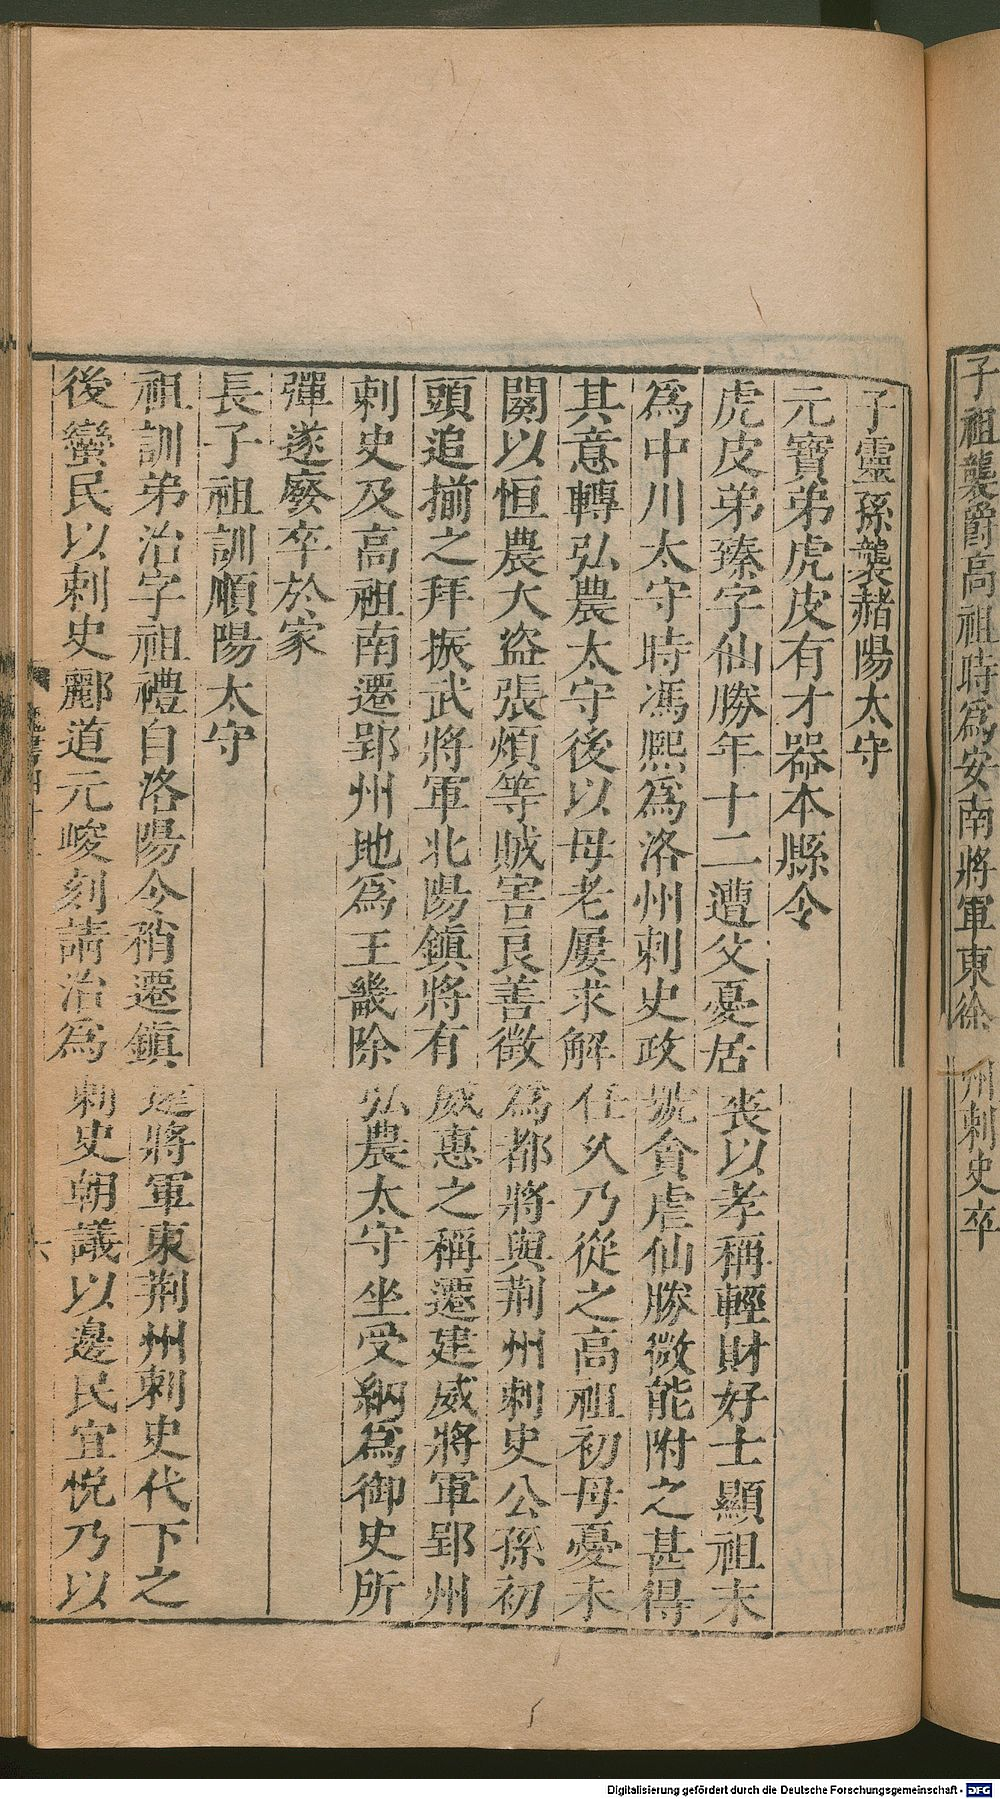 子祖襲爵高祖時爲安南將軍東徐州刺史卒
子靈孫襲赭陽太守
元寶弟虎皮有才器本縣令
虎皮弟臻字仙勝年十二遭父憂居喪以孝稱輕財好士顯祖末
爲中川太守時馮熙爲洛州刺史政號貪虐仙勝微能附之甚得
其意轉弘農太守後以母老屢求解任久乃從之高祖初母憂未
闋以恒農大盜張煩等賊害良善徵爲都將與荆州刺史公孫初
頭追揃之拜振武將軍北陽鎮將有威惠之稱遷建威將軍郢州
刺史及高祖南遷郢州地爲王畿除弘農太守坐受納爲御史所
彈遂廢卒於家
長子祖訓順陽太守
祖訓弟治字祖禮自洛陽令稍遷鎮遠將軍東荆州刺史代下之
後蠻民以刺史酈道元峻刻請治爲刺史朝議以邊民宜悅乃以
六
Digitalisierung gefördert durch die Deutsche Forschungsgemeinschaft - DFG